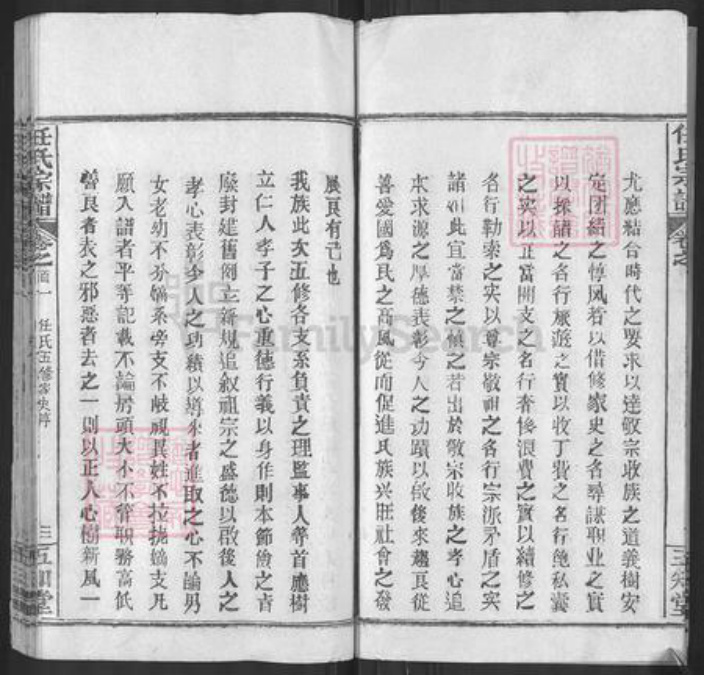 尤應結合時代之要求以達敬宗收族之道義樹安
定團結之惇风若以借修家史之名尋謀职业之實
以採譜之各行旅遊之實以收丁費之名行飽私囊
之实以正當開支之名行奢侈浪費之實以續修之
名行勒索之实以尊宗敬祖之各行宗派矛盾之实
諸如此宜當禁之慎之若出於敬宗收族之孝心追
本求源之厚德表彰今人之功蹟以啟後來趨良從
善愛國為民之高風從而促進民族兴旺社會之發
展良有已也
我族此次五修各支系負責之理監事人等首應樹
立仁人孝子之心重德行義以身作則本節儉之旨
廢封建舊例立新規追叙祖宗之盛德以啟後人之
孝心表彰今人之功績以導來者進取之心不論男
女老幼不分嫡系旁支不岐視異姓不拉拢嫡支凡
願入譜者平等記載不論房頭大小不管职務高低
善良者表之邪惡者去之一則以正人心樹新風一
任氏宗譜
卷之首一
任氏五修家史序
三
五知堂
任氏宗譜
卷之
五知堂
FamilySearch